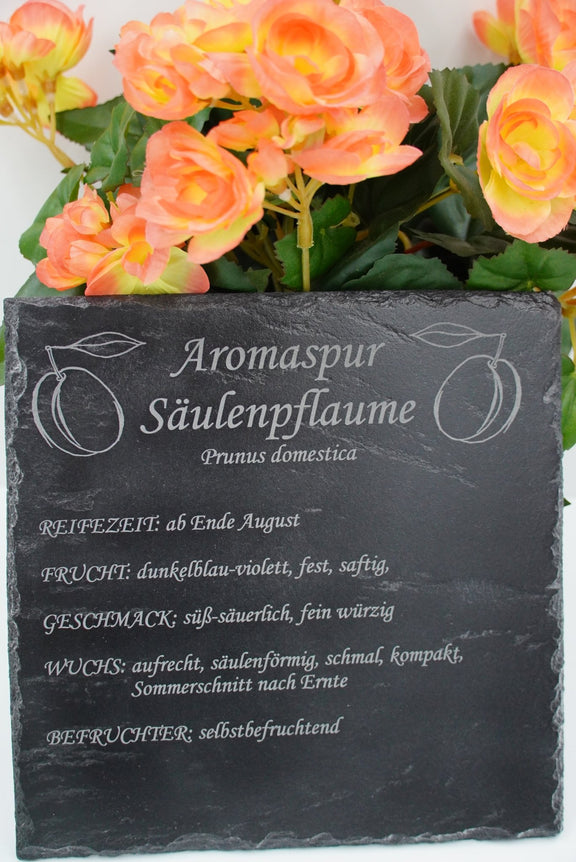 Aromaspur
Säulenpflaume
Prunus domestica
REIFEZEIT: ab Ende August
FRUCHT: dunkelblau-violett, fest, saftig,
GESCHMACK: süß-säuerlich, fein würzig
WUCHS: aufrecht, säulenförmig, schmal, kompakt,
Sommerschnitt nach Ernte
BEFRUCHTER: selbstbefruchtend